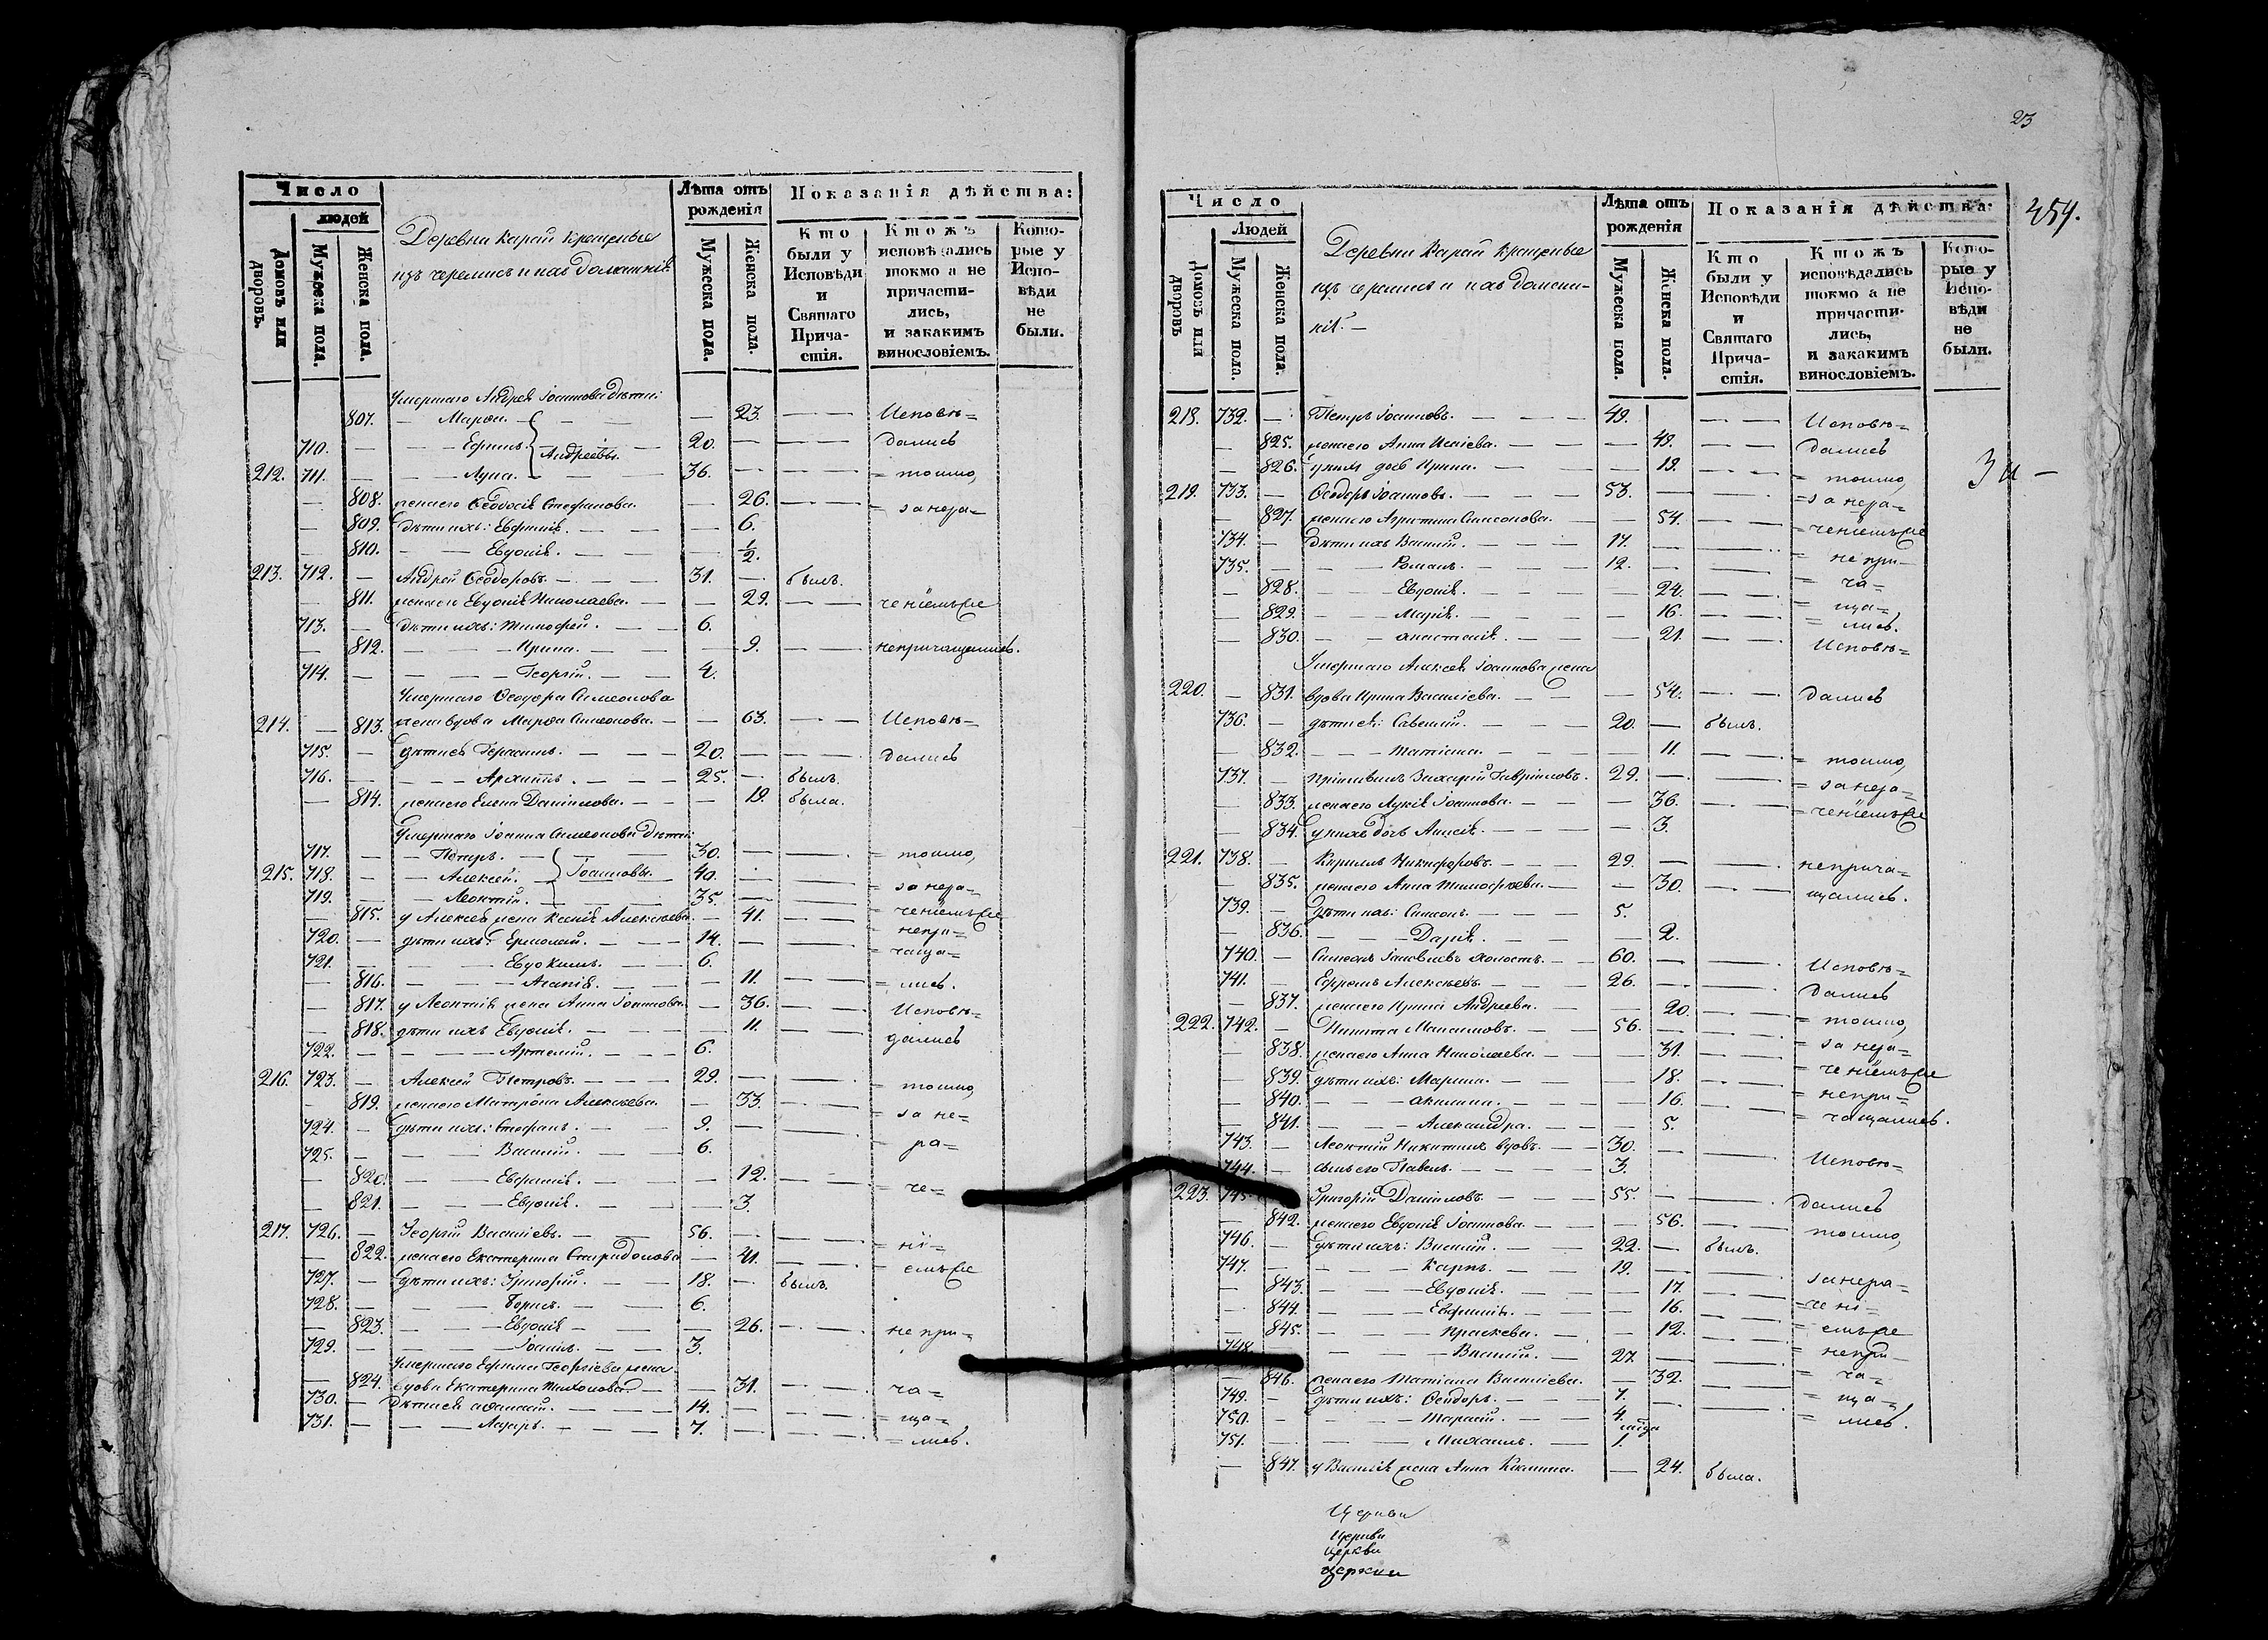 Число
людей
Домовъ или дворовъ.
Мужеска пола.
Женска пола.
Деревни Карай крещеные
изъ черемисъ и ихъ домашніе
Лѣта отъ рожденія
Мужеска пола.
Женска пола.
Показанія дѣйства:
Кто были у Исповѣди и Святаго Прича-стія.
Ктожъ исповѣдались токмо а не причасти-лись, и закакимъ винословіемъ.
Кото-рые у Испо-вѣди не были.
Умершаго Андрея Іоаннова дѣти:
807. — Марѳа. — — 23. — — Исповѣ=
710. — — Ефимъ. Андреевы. — 20. — — — дались
212. 711. — — Лука. — — 36. — — — = токмо,
— 808. жена его Ѳеодосія Стефанова. — 26. — — = за нера=
— 809. дѣти ихъ: Евфимія. — — — 6.
— 810. — — Евдокія. — — — 1/2.
213. 712. — Андрей Ѳеодоровъ. — — — 31. — былъ.
— 811. жена его Евдокія Николаева. — — 29. — — ченіемъ се
713. — дѣти ихъ: Тимофей. — — 6.
— 812. — — — Ирина. — — — 9. — — непричащались.
714. — — — — Георгій. — — 4.
Умершаго Ѳеодора Симеонова
214. — 813. жена вдова Марѳа Симеонова. — — 63. — — Исповѣ=
715. — дѣти ея Герасимъ. — — — 20. — — — дались
716. — — — — Архипъ. — — — 25. — былъ.
— 814. жена его Елена Даніилова. — — — 19. была.
Умершаго Іоанна Симеонова дѣти:
717. — — Петръ. — — — 30. — — — = токмо,
215. 718. — — Алексей. Іоанновы. 40. — — — = за нера=
719. — — Леонтій. — — 35. — — — = ченіемъ се
— 815. у Алексея жена Ксенія Алексѣева. — 41. — — = непри=
720. — дѣти ихъ: Ермолай. — — — 14. — — — = чаща=
721. — — — Евдокимъ. — — 6.
— 816. — — — Агапія. — — 11. — — = лись.
— 817. у Леонтія жена Анна Іоаннова. — 36. — — Исповѣ=
— 818. дѣти ихъ Евдокія. — — — — 11. — — дались
722. — — — — Артемій. — — — 6.
216. 723. — Алексей Петровъ. — — — 29. — — — = токмо,
— 819. жена его Матрона Алексѣева. — 33. — — = за не=
724. — дѣти ихъ: Стефанъ. — — 9. — — — = ра=
725. — — — Василій. — — 6.
— 820. — — Евфимія. — — — 12. — — = че=
— 821. — — — Евдокія. — — — 3.
217. 726. — Георгій Василіевъ. — — 56. — — — = ні=
— 822. жена его Екатерина Спиридонова — 41. — — = емъ се
727. — дѣти ихъ: Григорій. — — 18. — былъ.
728. — — — Борисъ. — — 6.
— 823. — — — Евдокія — — — 26. — — непри=
729. — — — — Іоаннъ. — — 3.
Умершаго Ефима Георгіева жена
— 824. вдова Екатерина Тихонова — — 31. — — ча=
730. — дѣти ея Аѳанасій. — — — 14. — — — = ща=
731. — — — Лазарь. — — — 7. — — — = лись.
23
454.
Число
Людей
Домовъ или дворовъ
Мужеска пола.
Женска пола.
Деревни Карай крещеные
изъ черемисъ и ихъ домаш-
ніе. —
Лѣта отъ рожденія
Мужеска пола.
Женска пола.
Показанія дѣйства:
Кто были у Исповѣди и Святаго Прича-стія.
Ктожъ исповѣдались токмо а не причасти-лись, и закакимъ винословіемъ.
Кото-рые у Испо-вѣди не были.
218. 732. — Петръ Іоанновъ. — — — 49. — — Исповѣ=
— 825. жена его Анна Исаіева. — — — 49. — — дались
— 826. у нихъ дочь Ирина. — — — 19. — — = токмо,
219. 733. — Ѳеодоръ Іоанновъ. — — 53. — — = за нера=
— 827. жена его Агрипина Симеонова. — — 54. — — = ченіемъ се
734. — дѣти ихъ Василій. — — — 17. — — = непри—
735. — — — Романъ. — — — 12. — — = ча=
— 828. — — Евдокія. — — — — 24. — — = ща=
— 829. — — Марія. — — — — 16. — — = лись.
— 830. — — Анастасія. — — — 21. — — Исповѣ=
Умершаго Алексея Іоаннова жена
220. — 831. вдова Ирина Василіева. — — — 54. — — дались
736. — дѣти ея: Савелій. — — — 20. — былъ.
— 832. — — — Татіана. — — — — 11. — — = токмо,
737. — Захарій Гавріиловъ. 29. — — — = за нера=
— 833. жена его Лукія Іоаннова. — — — 36. — — = ченіемъ се
— 834. у нихъ дочь Анисія. — — — — 3.
221. 738. — Кириллъ Никифоровъ. — — 29. — — — неприча=
— 835. жена его Анна Тимофѣева. — — 30. — — щались.
739. — дѣти ихъ: Симеонъ. — — — 5.
— 836. — — — Дарія. — — — 2.
740. — Симеонъ Іаковлевъ холостъ. — 60. — — — Исповѣ=
741. — Ефремъ Алексѣевъ — — 26. — — — дались
— 837. жена его Ирина Андреева. — — 20. — — = токмо,
222. 742. — Никита Максимовъ. — — 56. — — — = за нера=
— 838. жена его Анна Николаева. — — 31. — — = ченіемъ се
— 839. дѣти ихъ: Марина. — — — 18. — — = непри=
— 840. — — — Акилина. — — — — 16. — — = чащались.
— 841. — — — Александра. — — — 5.
743. — Леонтій Никитинъ вдовъ. — 30. — — — Исповѣ=
744. — сынъ его Павелъ. — — — — 3.
223. 745. Григорій Даніиловъ. — — 55. — — — дались
— 842. жена его Евдокія Іоаннова. — — — 56. — — токмо,
746. — дѣти ихъ: Василій. — — 22. — былъ.
747. — — — — Карпъ. — — 19. — — —
— 843. — — — Евдокія. — — — 17. — — за нера=
— 844. — — — Евфимія. — — — 16. — — = че ні=
— 845. — — — Праскева. — — 12. — — = емъ се
748. — — — — Василій. — 27. — — — = непри—
846. жена его Татіана Василіева. — 32. — — = ча=
749. — дѣти ихъ: Ѳеодоръ. — — — 7. — — = ща=
750. — — — — Тарасій. — — 4. — — = лись.
751. — — — Михаилъ. — 1.
— 847. у Василія жена Анна Козмина. — 24. была.
Церкви
Церкви
Церкви
Церкви